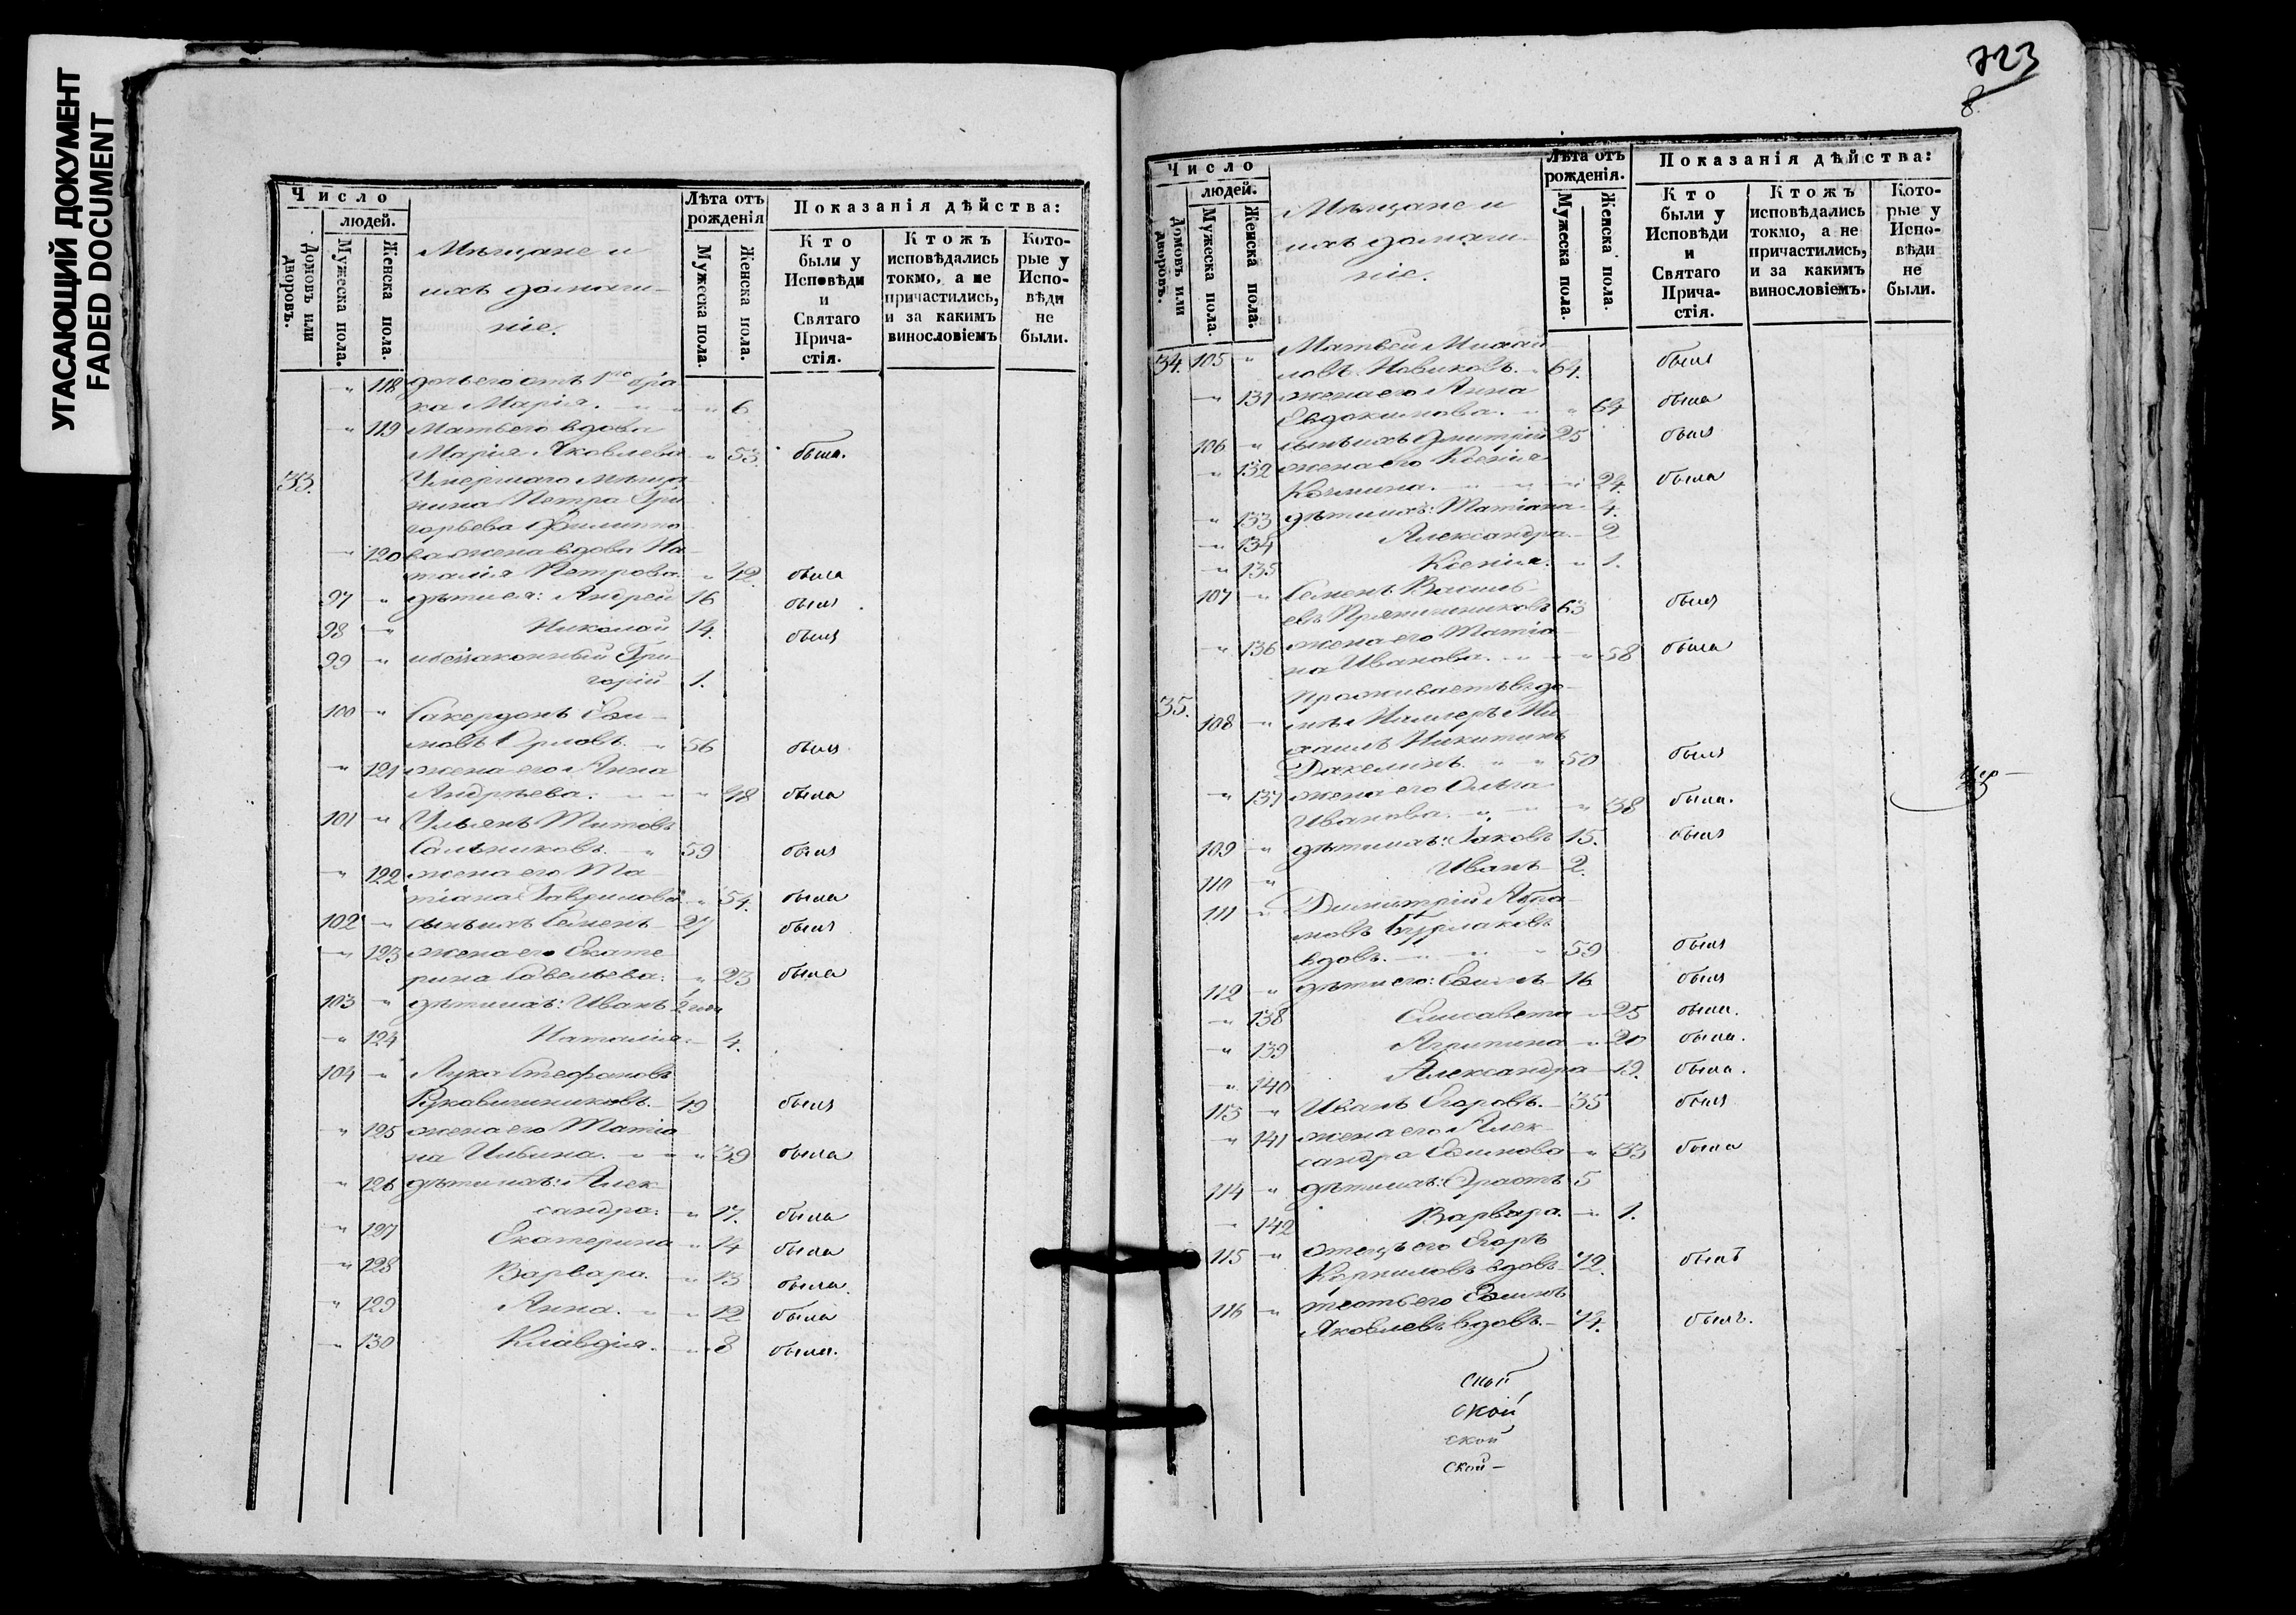 УГАСАЮЩИЙ ДОКУМЕНТ
FADED DOCUMENT
Число
людей.
Домовъ или дворовъ.
Мужеска пола.
Женска пола.
Мѣщане и
ихъ домаш-
ніе.
Лѣта отъ рожденія
Мужеска пола
Женска пола.
Показанія дѣйства:
Кто были у Исповѣди и Святаго Прича-стія.
Ктожъ исповѣдались токмо, а не причастились, и за какимъ винословіемъ
Кото-рые у Испо-вѣди не были.
" 118 дочь его отъ 1го бра
ка Марія. " " " 6
" 119 Мать его вдова
Марія Яковлева " 53. была.
33. Умершаго мѣща
нина Петра Гри
горьева Филиппо
" 120 ва жена вдова На
талія Петрова. " 42. была
97 " дѣти ея: Андрей 16 былъ
98 " Николай 14. былъ
99 " незаконный Гри
горій 1.
100 " Сакердонъ Ефи-
мовъ Орловъ. " 56 былъ
" 121 жена его Анна
Андрѣева. " " " 48 была
101 " Ульянъ Титовъ
Сальниковъ. " 59 былъ
" 122 жена его Та-
тіана Гаврилова " 54. была
102 " сынъ ихъ Семенъ 27 былъ
" 123 жена его Екате
рина Савельева. " 23 была
103 " дѣти ихъ: Иванъ
" 124 Наталія. 4.
104 " Лука Стефановъ
Рукавишниковъ. 49 былъ
" 125 жена его Татіа
на Ильина. " " " 39 была
" 126 дѣти ихъ: Алек
сандра. " 17. была
" 127 Екатерина " 14 была
" 128 Варвара. " 13 была.
" 129 Анна. " " 12 была
" 130 Клавдія. " 8 была.
723
8.
Число
людей.
Домовъ или дворовъ.
Мужеска пола.
Женска пола.
Мѣщане и
ихъ домаш-
ніе.
Лѣта отъ рожденія.
Мужеска пола.
Женска пола.
Показанія дѣйства:
Кто были у Исповѣди и Святаго Прича-стія.
Ктожъ исповѣдались токмо, а не причастились, и за какимъ винословіемъ.
Кото-рые у Испо-вѣди не были.
34. 105 " Матвей Михай
ловъ Новиковъ. " 64. былъ
" 131 жена его Анна
Евдокимова. " " 64 была
106 " сынъ ихъ Дмитрій 25 былъ
" 132 жена его Ксенія
Козмина. " " " 24. была
" 133 дѣти ихъ: Татіана 4.
" 134 Александра. 2
" 135 Ксенія. " 1.
107 " Семенъ Василь-
евъ Пряничниковъ 63 былъ
" 136 жена его Татіа
на Иванова. " " " 58 была
35. Проживаетъ въ до-
108 " мѣ Ми
хаилъ Никитинъ
" " 50 былъ
" 137 жена его Ольга
Иванова. " " " 38 была.
109 " дѣти ихъ: Іаковъ 15. былъ
110 " Иванъ 2.
111 " Димитрій Абра
мовъ Бурлаковъ
вдовъ. " " " 59 былъ
112 " дѣти его: Ефимъ 16 былъ
" 138 Елисавета " 25 была.
" 139 Агрипина " 20 была.
" 140 Александра 19. была.
113 " Иванъ Егоровъ. 35 былъ
" 141 жена его Алек-
сандра Ефимова " 33 была
114 " дѣти ихъ: Ерастъ 5
" 142 Варвара. " 1.
115 " отецъ его Егоръ
Корниловъ вдовъ 72. былъ
116 " тесть его Ефимъ
Яковлевъ вдовъ. 74. былъ.
ской
ской
ской
ской-